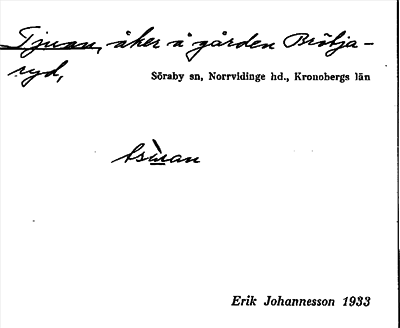 Tjuan, åker å gården Bröbja-
ryd,
Söraby sn, Norrvidinge hd., Kronobergs län
Erik Johannesson 1933